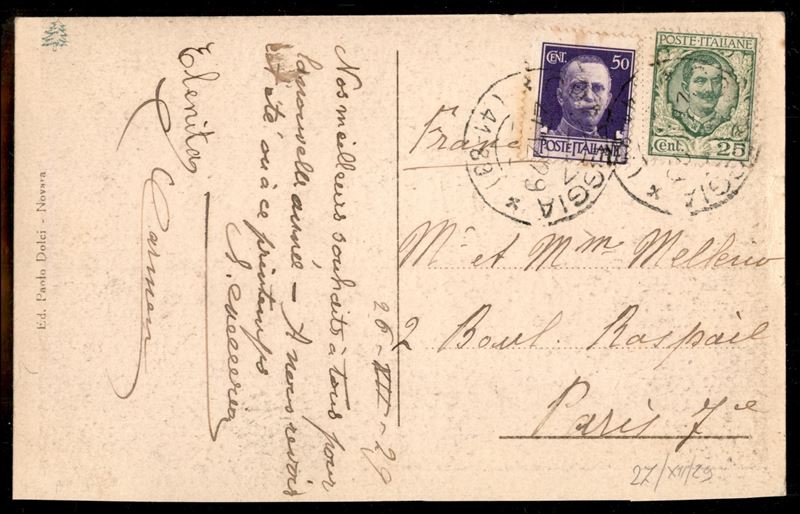 Nos meilleurs souhaits à tous pour
la nouvelle année - A nous revoir
été où à ce printemps
Elenita
Carmen
26-XII-29
Ed. Paolo Dolci - Novara
France
Mr et Mme Mellerio
2 Boul. Raspail
Paris 7e
27/XII/29
CENT. 50
POSTE ITALIANE
POSTE-ITALIANE
Cent. 25
(41-8)
GGIA